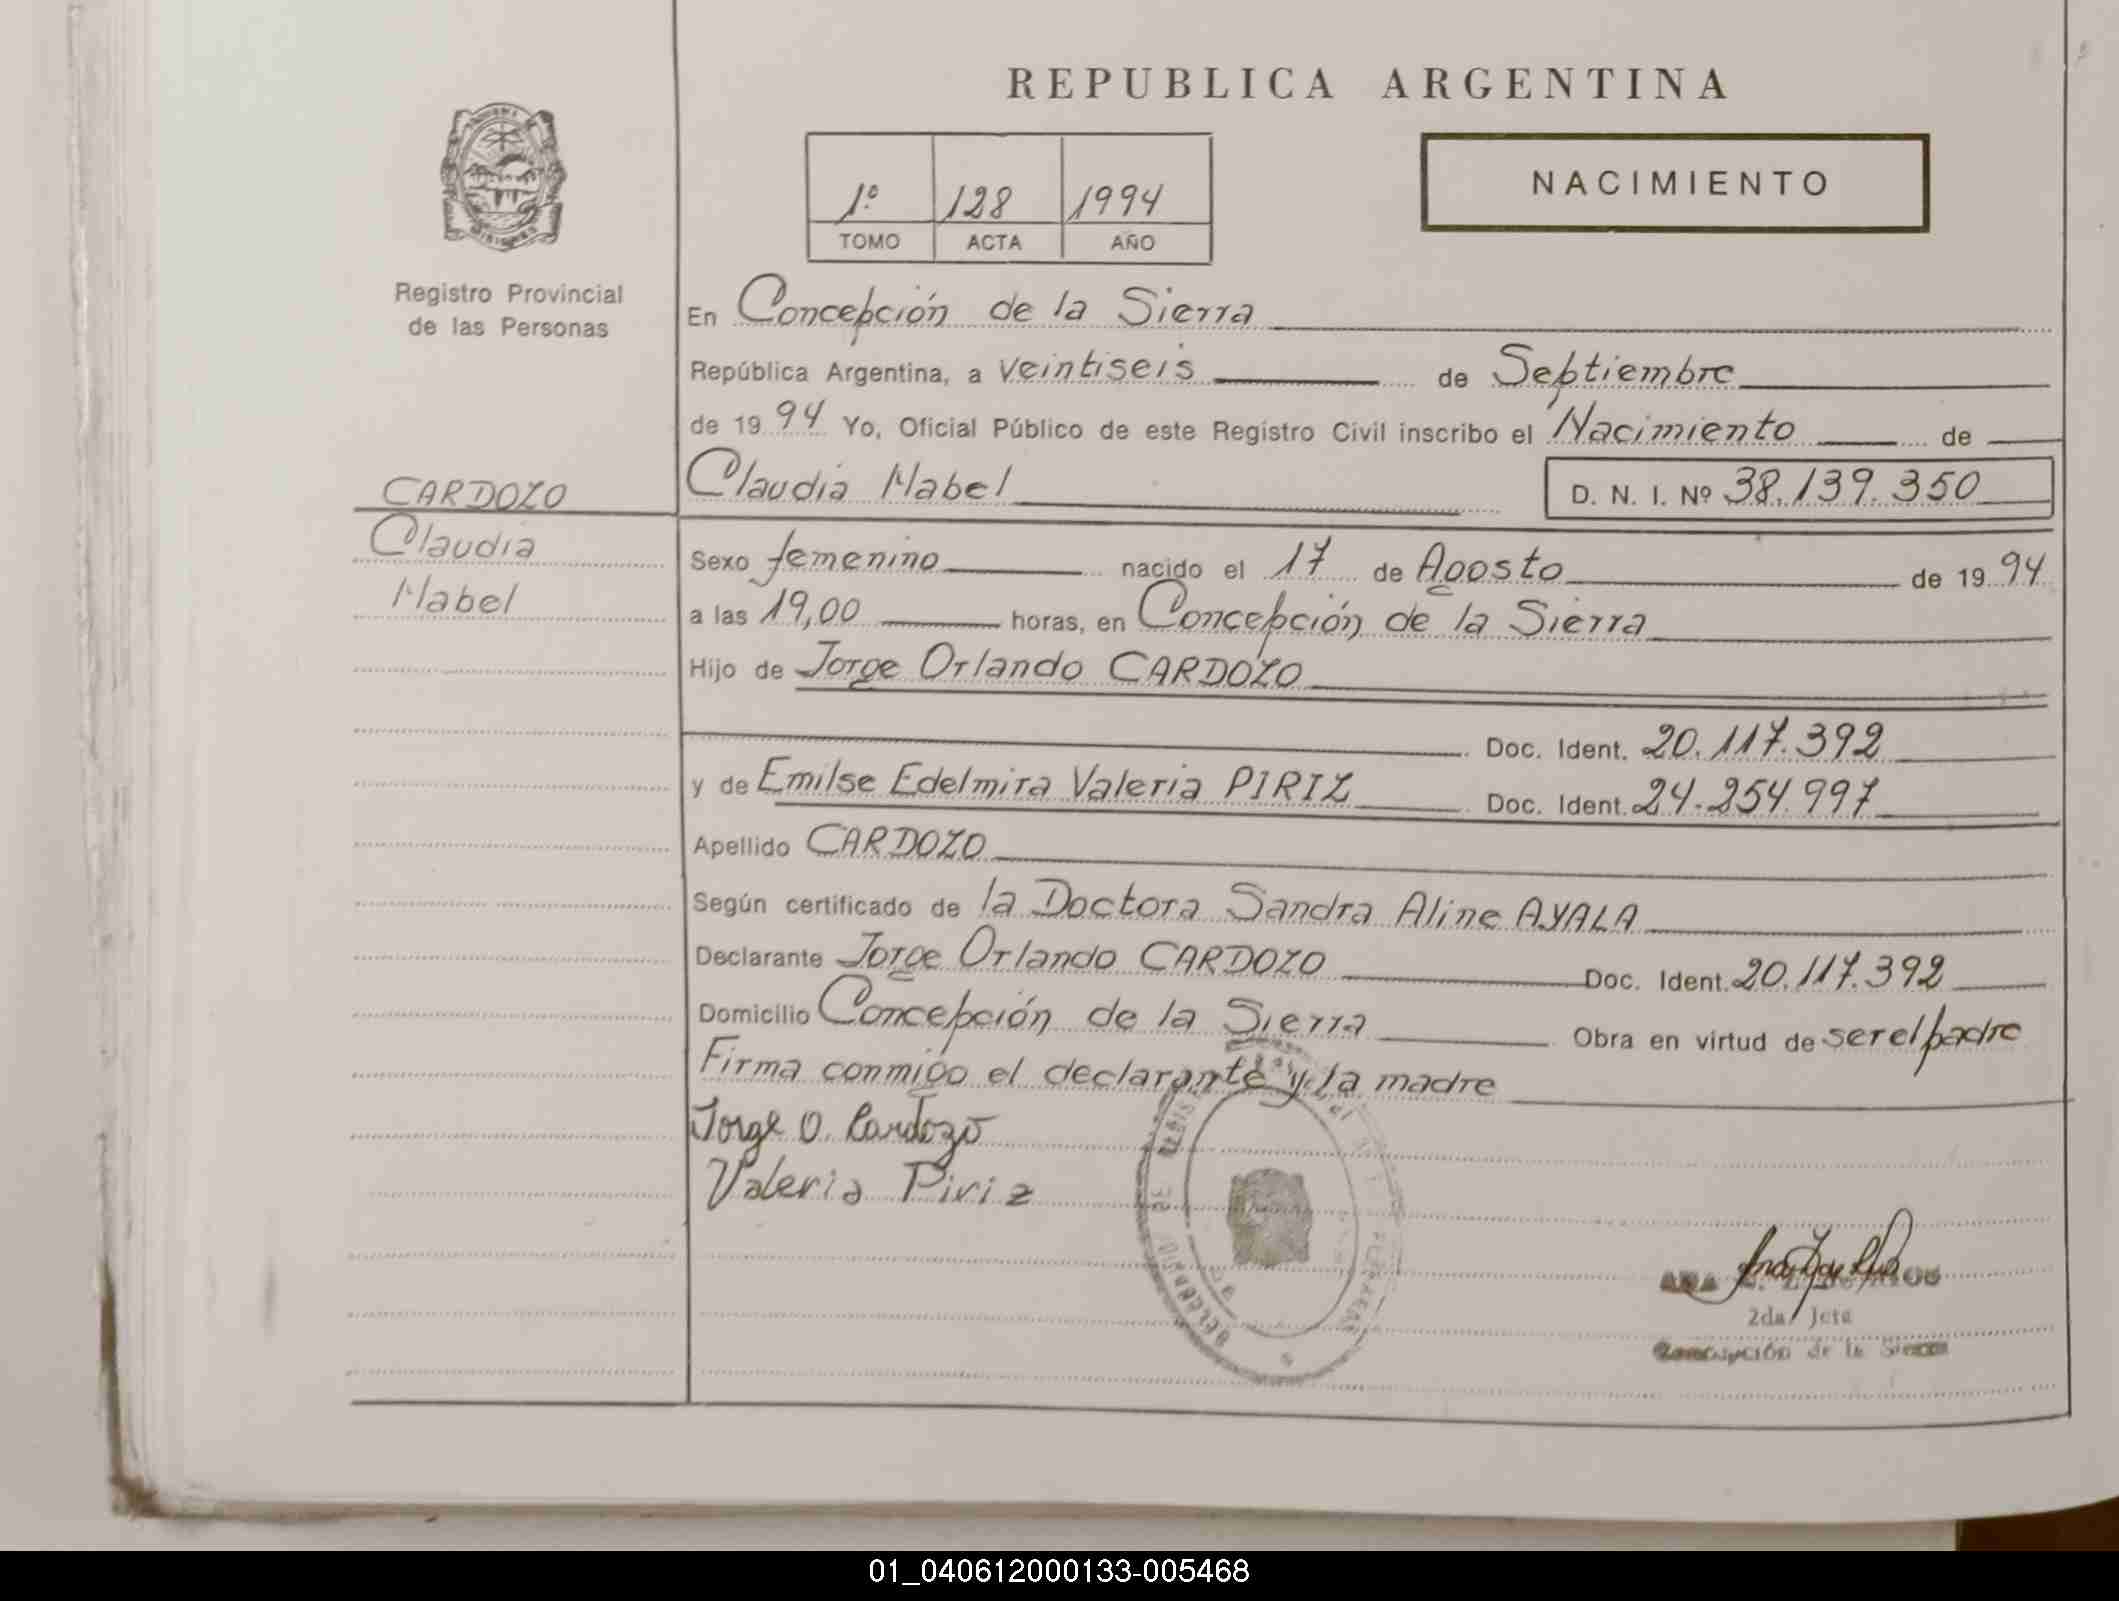 REPUBLICA ARGENTINA
1º 128 1994
TOMO ACTA AÑO
NACIMIENTO
Registro Provincial
de las Personas
CARDOZO
Claudia
Mabel
En Concepción de la Sierra
República Argentina, a veintiseis de Septiembre
de 19 94 Yo, Oficial Público de este Registro Civil inscribo el Nacimiento de
Claudia Mabel D. N. I. Nº 38.139.350
Sexo femenino nacido el 17 de Agosto de 19 94
a las 19,00 horas, en Concepción de la Sierra
Hijo de Jorge Orlando CARDOZO
Doc. Ident. 20.117.392
y de Emilse Edelmira Valeria PIRIZ Doc. Ident. 24.254.997
Apellido CARDOZO
Según certificado de la Doctora Sandra Aline AYALA
Declarante Jorge Orlando CARDOZO Doc. Ident. 20.117.392
Domicilio Concepción de la Sierra Obra en virtud de ser el padre
Firma conmigo el declarante y la madre
Jorge O. Cardozo
Valeria Piriz
ANA
2da Jefa
Concepción de la Sierra
01_040612000133-005468